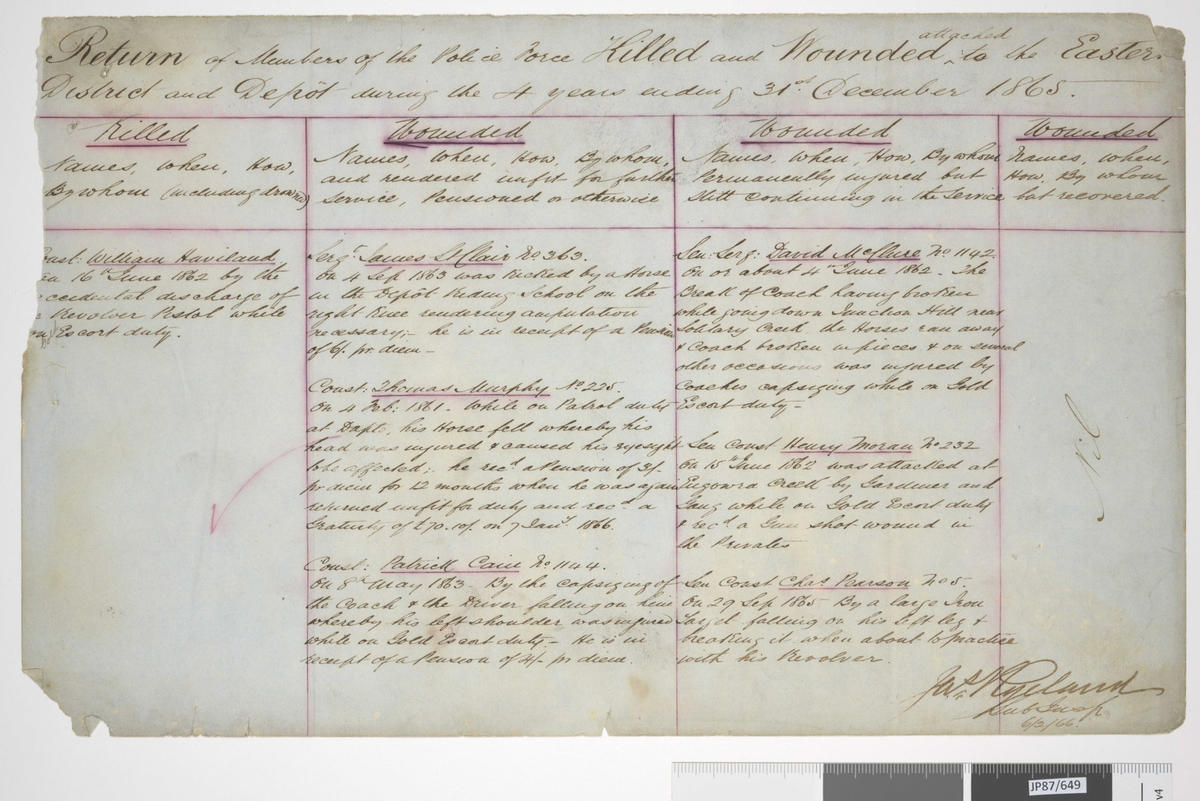 Return of Members of the Police Force Killed and Wounded attached to the Eastern
District and Depôt during the 4 years ending 31st December 1865.
Killed
Names, When, How,
By whom (including drowned)
Const: William Haviland
on 16th June 1862 by the
accidental discharge of
a Revolver Pistol while
on Gold Escort duty.
Wounded
Names, When, How, By whom,
and rendered unfit for further
service, Pensioned or otherwise
Sergt James St Clair No 363.
On 4 Sep 1863 was kicked by a Horse
in the Depôt Riding School on the
right Knee rendering amputation
necessary;- he is in receipt of a Pension
of 6/. pr diem -
Const: Thomas Murphy No 225.
On 4 Feb: 1861. While on Patrol duty
at Dapto, his Horse fell whereby his
head was injured & caused his eyesight
to be affected; he recd a Pension of 3/.
pr diem for 12 months when he was again
returned unfit for duty and recd a
Gratuity of £70.10/. on 7 Jany 1866.
Const: Patrick Cain No 1144.
On 8th May 1863 - By the capsizing of
the Coach & the Driver falling on him
whereby his left shoulder was injured
while on Gold Escort duty - He is in
receipt of a Pension of 4/- pr diem.
Wounded
Names, When, How, By whom
Permanently injured but
still continuing in the Service
Sen: Serg: David McClure No 1142
On or about 4th June 1862. The
Break of Coach having broken
while going down Junction Hill near
Solitary Creek the Horses ran away
& Coach broken in pieces & on several
other occasions was injured by
Coaches capsizing while on Gold
Escort duty -
Sen Const Henry Moran No 232
On 15th June 1862 was attacked at
Eugowra Creek by Gardiner and
Gang while on Gold Escort duty
& recd a Gun shot wound in
the Privates
Sen Const Chas Pearson No 5.
On 29 Sep 1865 By a large Iron
Target falling on his left leg &
breaking it when about to practise
with his Revolver.
Wounded
Names, When,
How, By whom
but recovered.
Nil
Jas Ryeland
Sub Insp
6/3/66.
JP87/649
V4